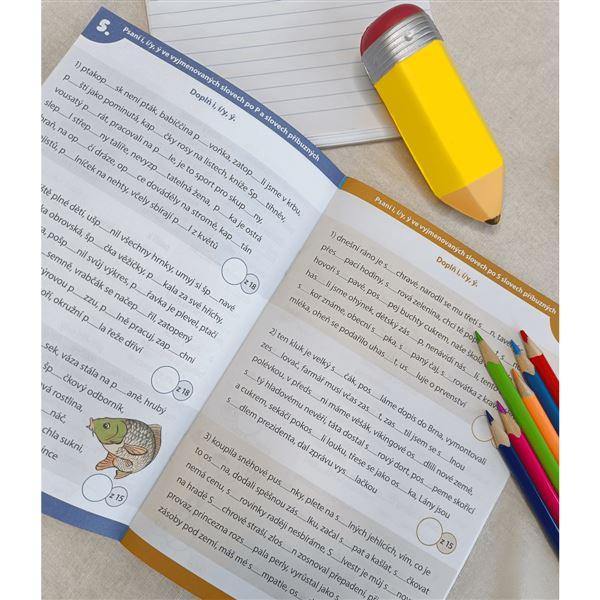 5.
Psaní i, í/y, ý ve vyjmenovaných slovech po P a slovech příbuzných
Doplň i, í/y, ý.
1) ptakop__sk není pták, babiččina p__voňka, zatop__li jsme v krbu,
p__ští jako pominutá, kap__čky rosy na listech, kníže Sp__tihněv,
vousatý p__rát, pracovali na p__le, je to sport pro skup__ny,
slep__l střep__ny talíře, nevyzp__tatelná žena, p__ka je ostrá
na op__čí dráze, op__ce dováděly na stromě, kap__tán
p__lníček na nehty, včely sbírají p__l z květů
z 18
plné děti, ušp__nil všechny hrnky, umyj si šp__navé
obrovská, šp__čka věžičky, p__kala za své hříchy,
pošp__nil svůj výkres, p__ravka je plevel, ptačí
semně, vrabčák se načep__řil, zatopený
p__zzu, p__lně pracuj, zap__chni
okružní p__la řeže dříví
z 18
sek, váza stála na p__aně, hrubý
šp__čkový odborník,
rostlina,
náč,
chla sukni,
ince
z 15
Psaní i, í/y, ý ve vyjmenovaných slovech po S a slovech příbuzných
Doplň i, í/y, ý.
1) dnešní ráno je s__chravé, narodil se mu třetí s__n,
přes__pací hodiny, s__rová zelenina, chci tě pop
hovoří s__pavě, pos__pej buchty cukrem, naše škol
has__li jsme ohýnek, dětský zás__p, nenávidí nás__lí, tento
s__kor známe, obecní s__pka, s__paný čaj, s__rovátka z krav
mléka, oheň se podařilo uhas__t, us__luje o prvenství
2) ten kluk je velký s__čák, pos__láme dopis do Brna, vymontovali
zes__lovač, farmář musí včas zas__t, zas__til jsem se s__lnou
polévkou, v předs__ni máme věšák, vikingové os__dlili nové země,
s__tý hladovému nevěří, táta dostal s__rový dort, pos__peme skořicí
a cukrem, sekáči pokos__li louku, třese se jako os__ka, Lány jsou
s__dlem prezidenta, dal zprávu vys__lačkou
z 15
3) koupila sněhové pus__nky, plete na s__lných jehlicích, vím, co je
to os__na, dodali spěšnou zás__lku, začal s__pat a kašlat, s__čkovat
nemá cenu, s__rovinky raději nesbíráme, S__lvestr je můj s__nov
na hradě S__chrově straší, zlos__n zosnoval přepadení,
provaz, princezna rozs__pala perly, vyrůstal jako s
zásoby pod zemí, máš mé s__mpatie, os